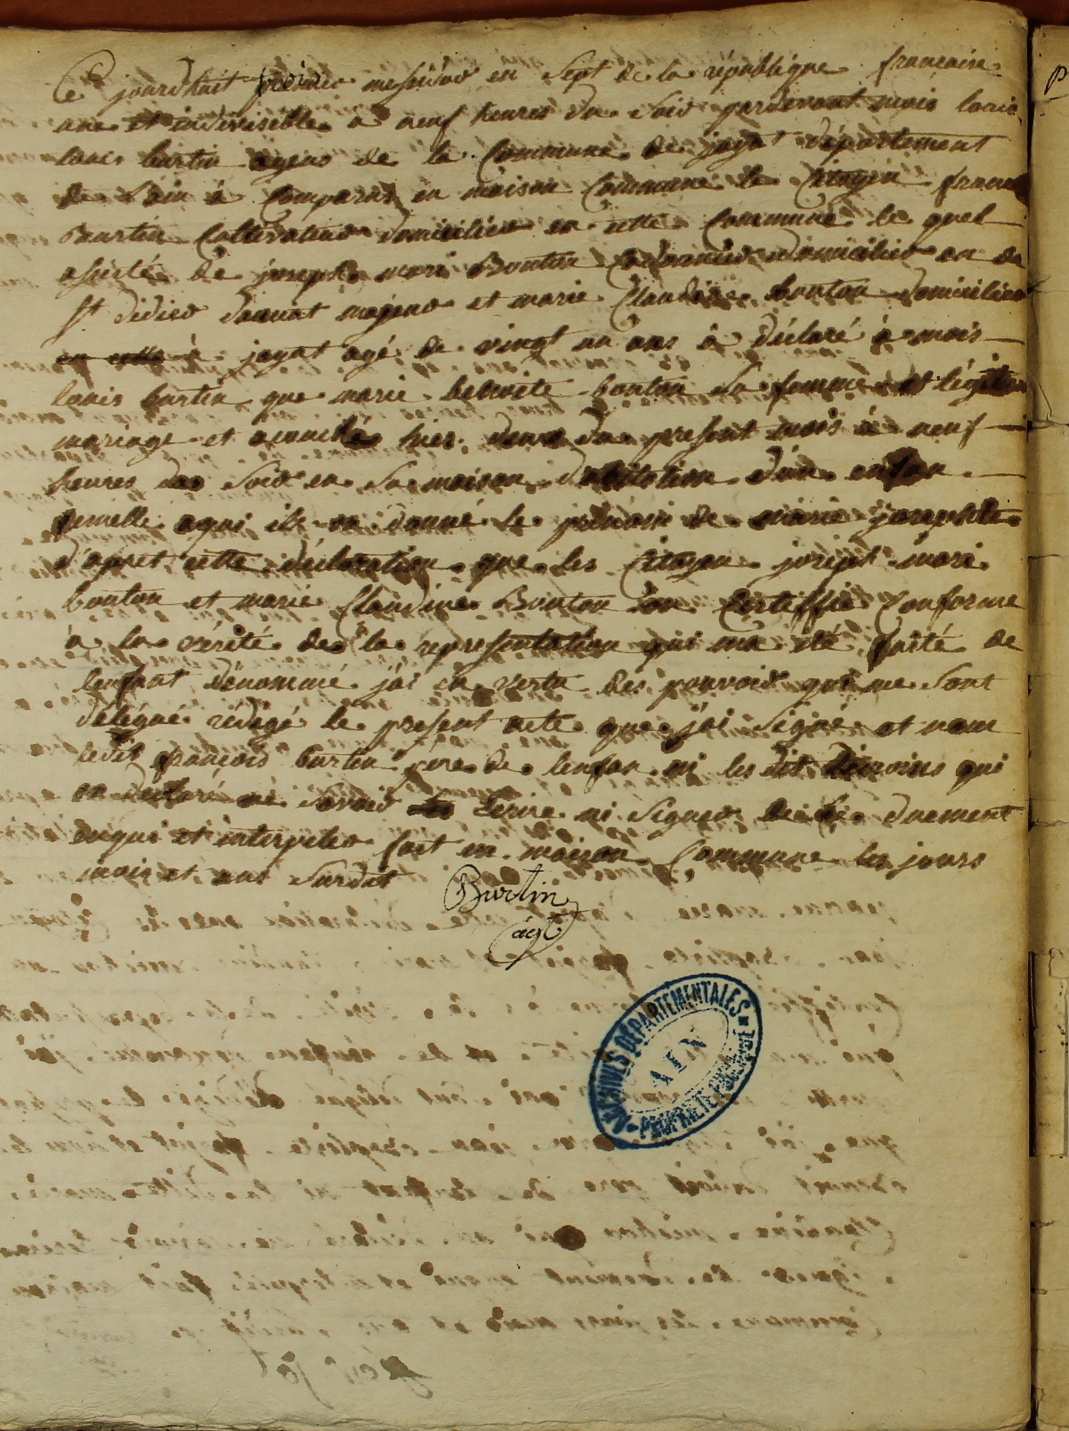 Ce jourdhuit premier messidor en sept de la république francaise
une et indivisible a neuf heures du soir pardevant mois louis
louis burtin agens de la commune de jayat département
de Lain à comparus en maison commune le citoyen francois
Burtin cultivateur domicilier en cette commune le quel
asisté de joseph mari Bonton domicilier en de
st didier daussiat et marie claudine bonton domicilier
à jayat agé de vingt un ans à déclaré à mois
louis burtin que marie benoite bonton sa femme et légitime
mariage et acouché hier du présent mois à neuf
heures du soir en sa maison dabitation dun enfan
femelle a qui ils on donné le prénom de marie josephte
d'apret cette déclaration que les citoyen joseph mari
bonton et marie claudine Bonton on certiffié conforme
à la vérité de la representation qui ma été faite de
lenfant dénommé jai en vertu des pouvoir qui me sont
délégué rédigé le present acte que j'ai signé et nom
ledit françois burtin pere de lenfan ni les dit témoins qui
on declaré ne savoir ni signer de ce duement
enquis et interpeler fait en maison commune les jours
mois et ans surdit
Burtin
agt
ARCHIVES DÉPARTEMENTALES
AIN
PROPRIÉTÉ PUBLIQUE